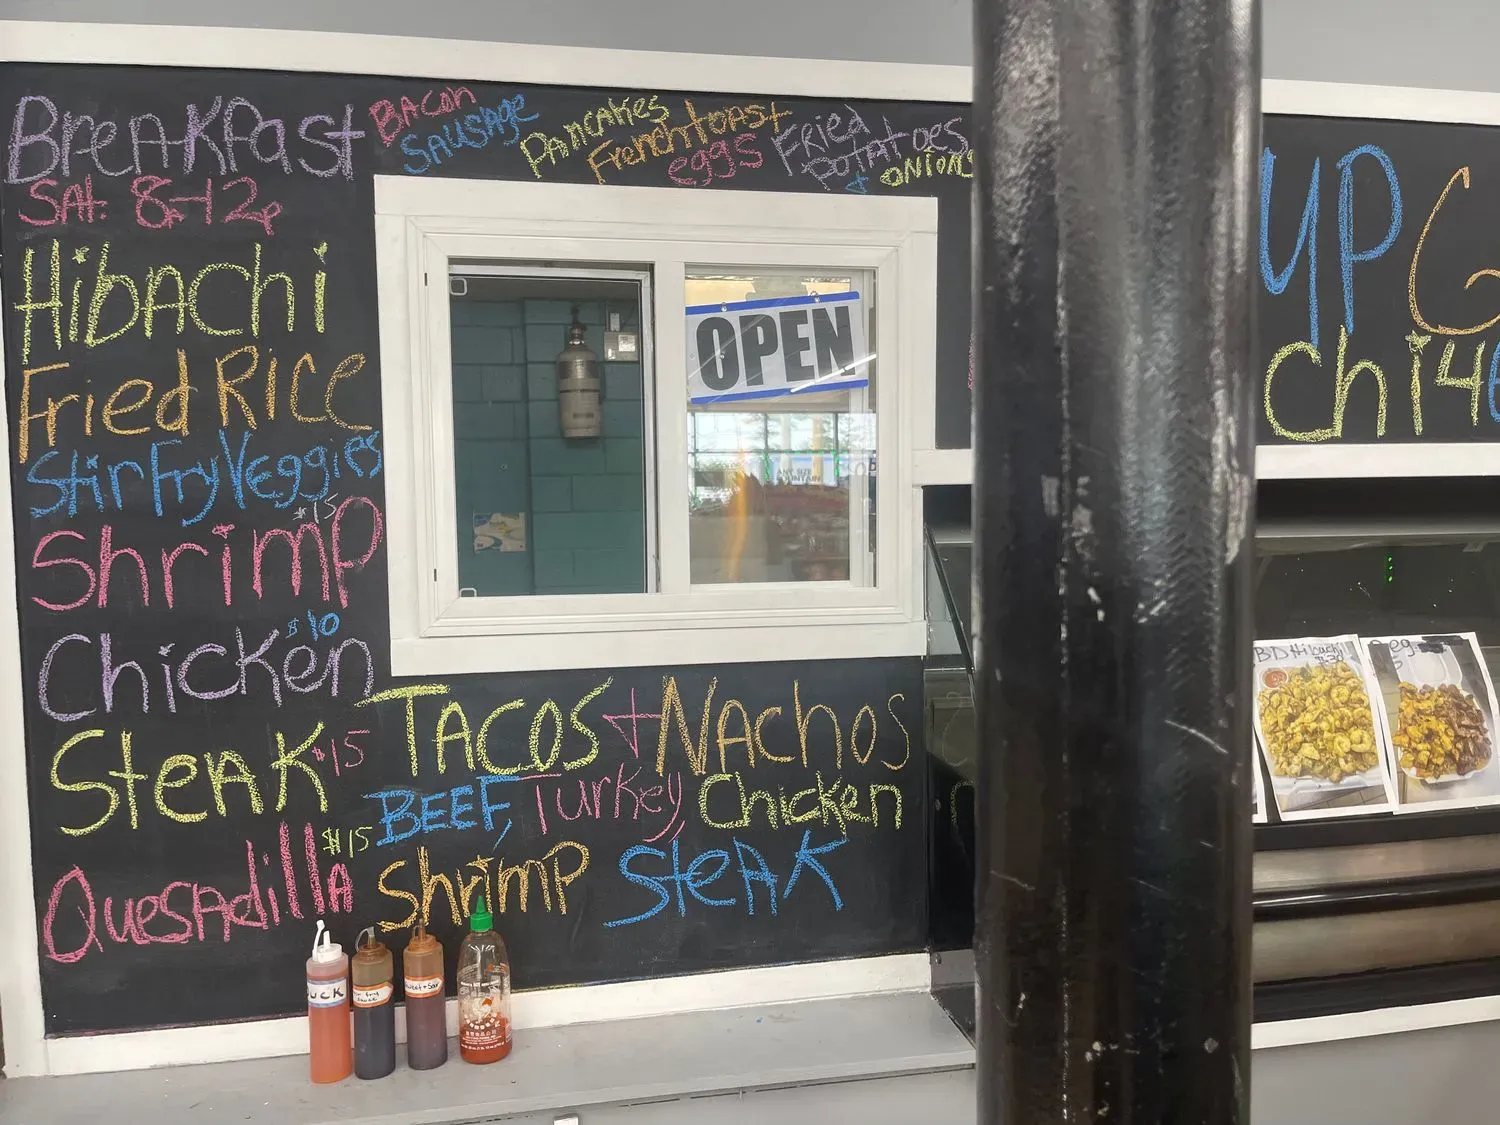 Breakfast
Sat. 8-12p
Bacon
Sausage
Pancakes
Frenchtoast
eggs
Fried
potatoes
& onions
Hibachi
Fried Rice
Stir Fry Veggies
$15
Shrimp
$10
Chicken
Steak $15
$15
Quesadilla
Tacos + Nachos
BEEF, Turkey, Chicken
Shrimp Steak
OPEN
ANY SIZE
UP G
chi
BD Hibachi
$30
UCK
Stir fry
sauce
Sweet + Sour